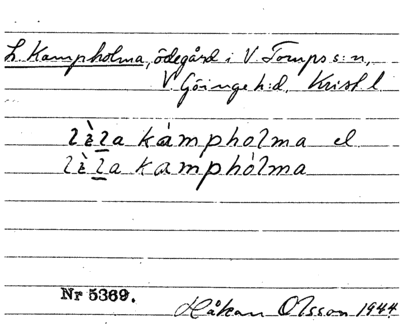 L. Kampholma, ödegård i V. Torups s:n,
V. Göinge h:d, Krist l
lὲla kámpholma el
lὲla kamphólma
Nr 5369.
Håkan Olsson 1944